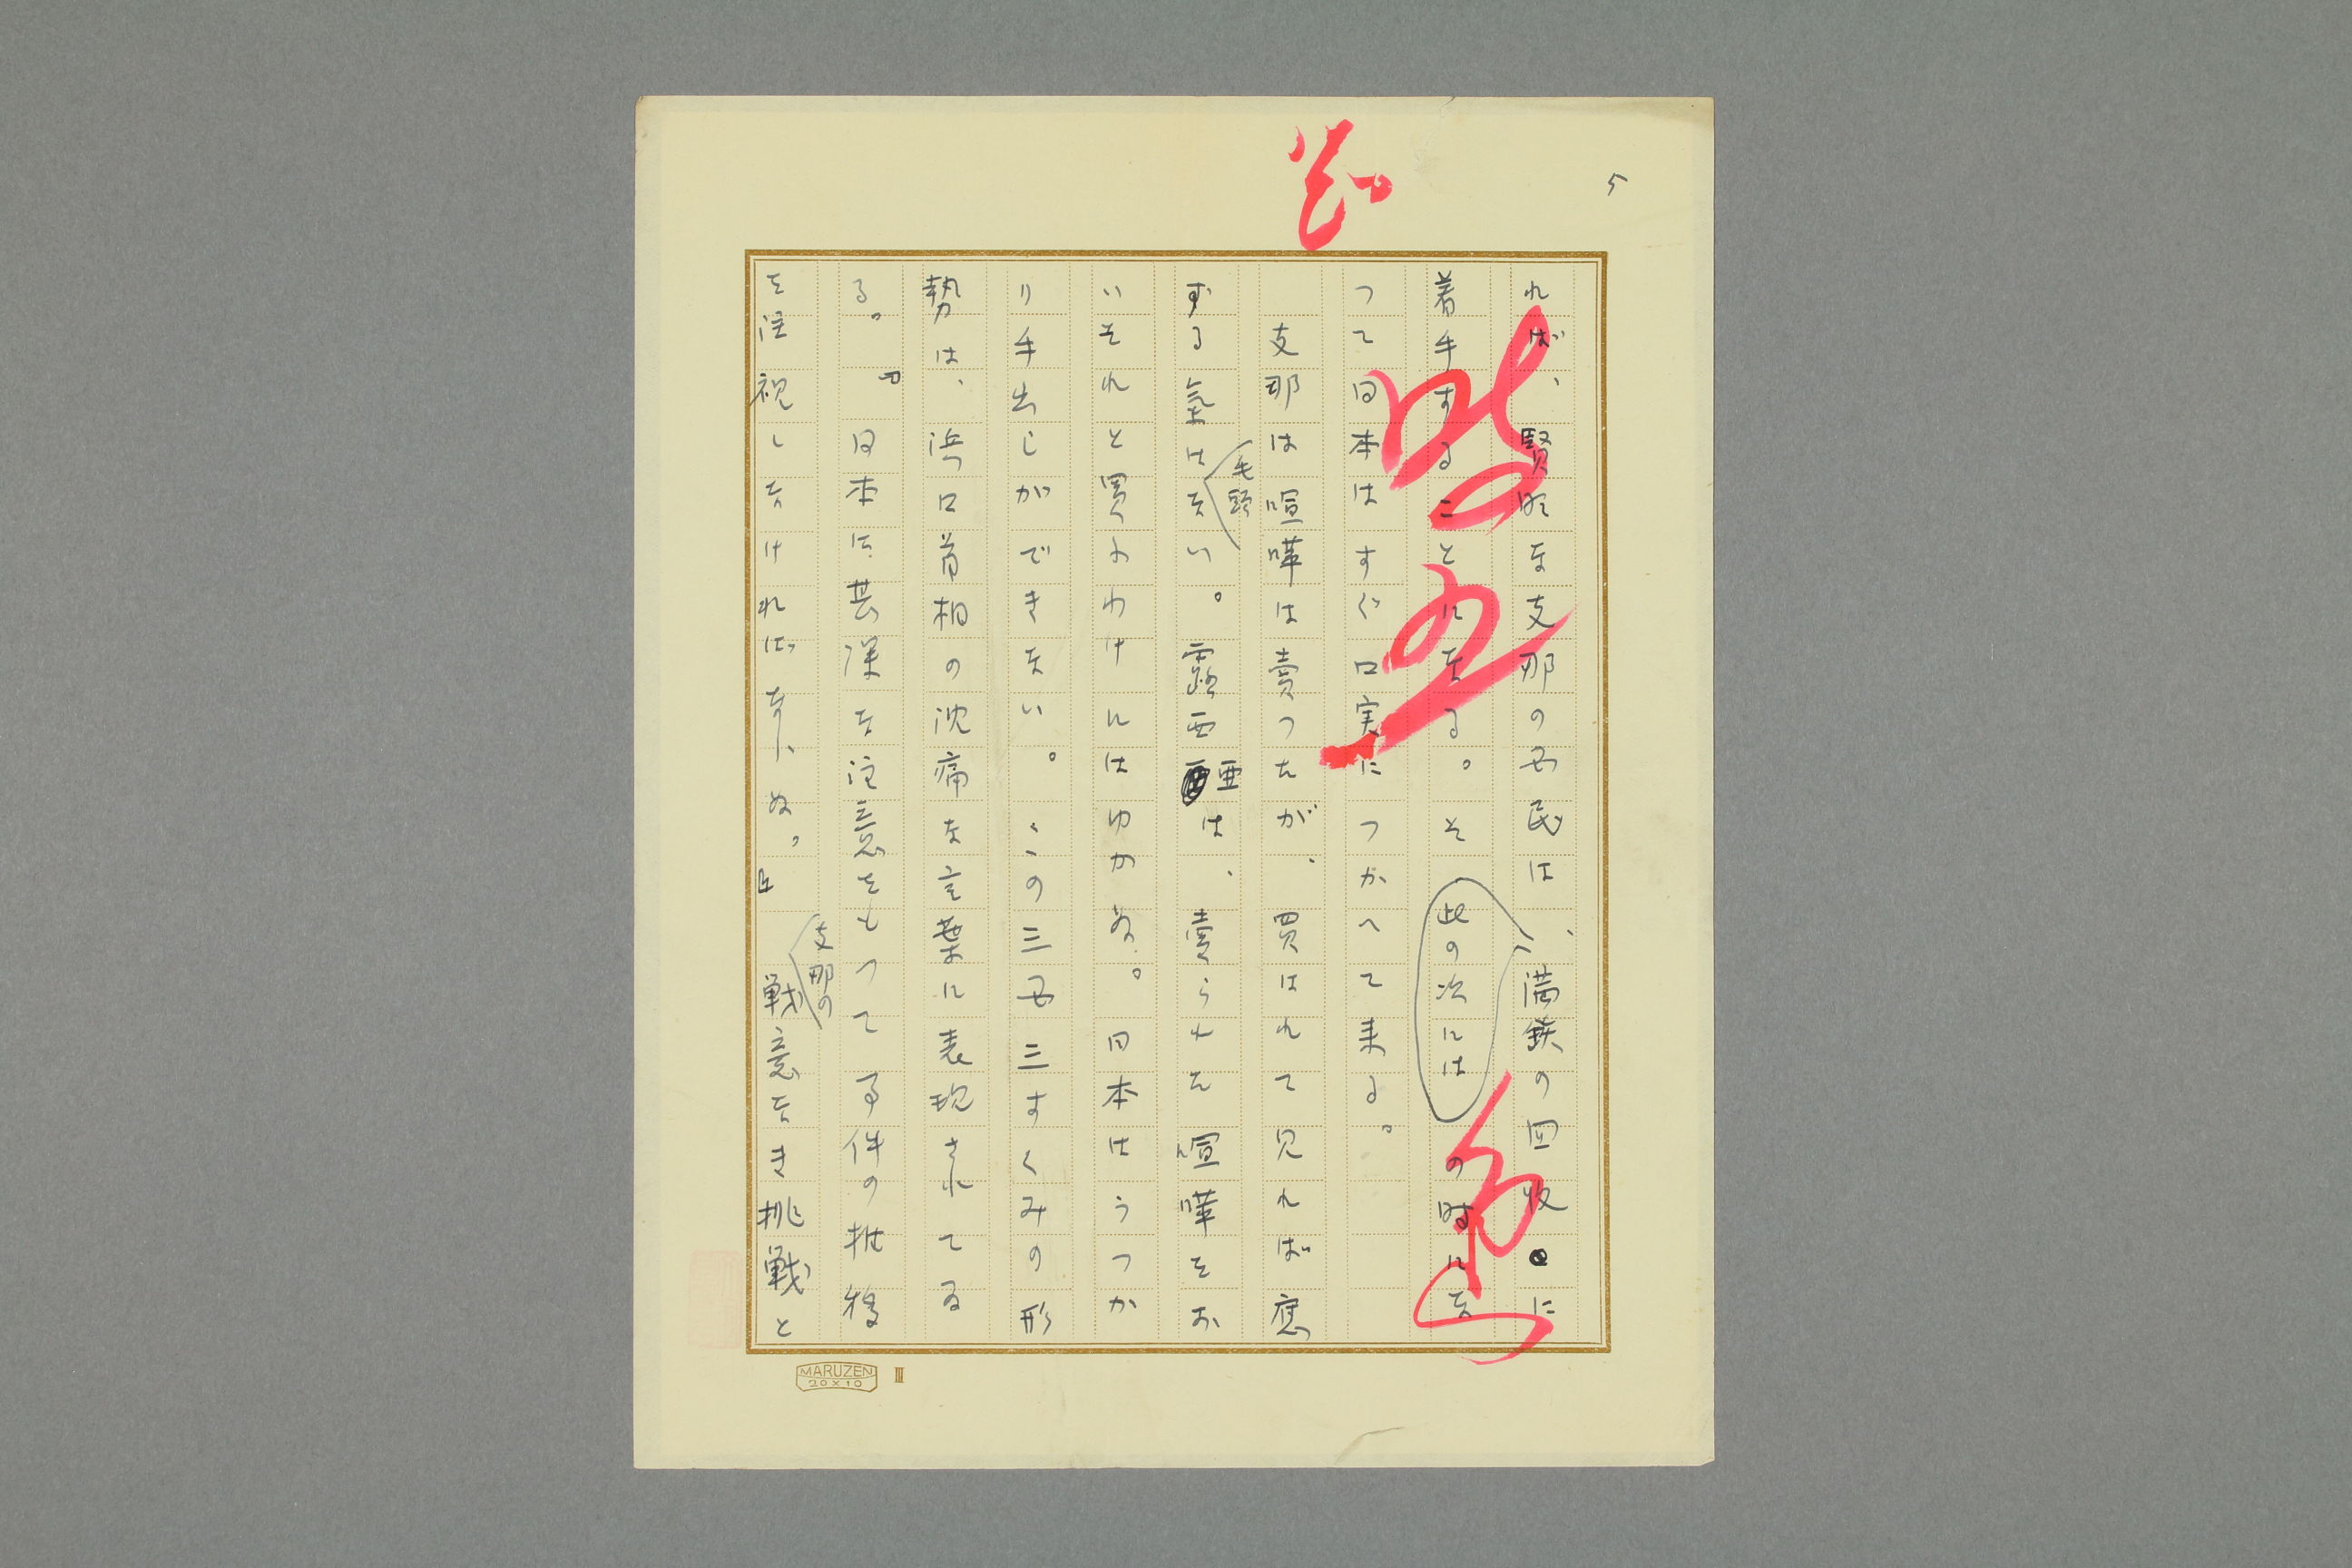 5
れば、賢明な支那の国民は、此の次には満鉄の回収に
着手することになる。その時にな
つて日本はすぐ口実につかへて来る。
支那は喧嘩は売つたが、買はれて見れば応
ずる気は毛頭ない。露西亜は、売られた喧嘩をお
いそれと買ふわけにはゆかぬ。日本はうつか
り手出しができない。この三国三すくみの形
勢は、浜口首相の沈痛な言葉に表現されてゐ
る。『日本は甚深な注意をもつて事件の推移
を注視しなければならぬ。』支那の戦意なき挑戦と
MARUZEN
20×10
III